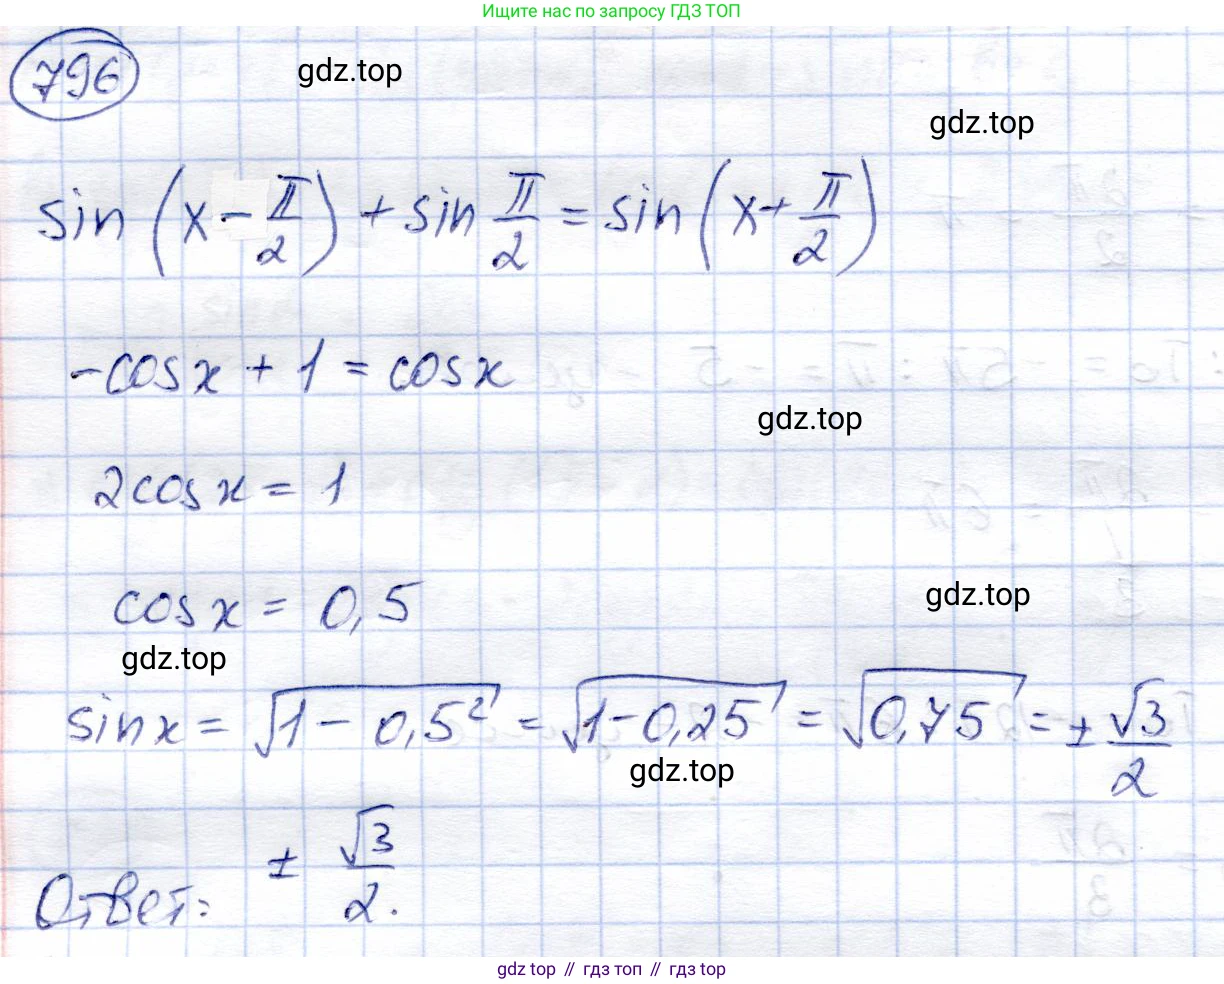 Ищите нас по запросу ГДЗ ТОП
796
gdz.top
gdz.top
sin (x - π/2) + sin π/2 = sin (x + π/2)
-cos x + 1 = cos x
gdz.top
2cos x = 1
cos x = 0,5
gdz.top
gdz.top
sin x = √(1 - 0,5²) = √(1 - 0,25) = √0,75 = ± √3/2
gdz.top
Ответ: ± √3/2.
gdz top // гдз топ // гдз top